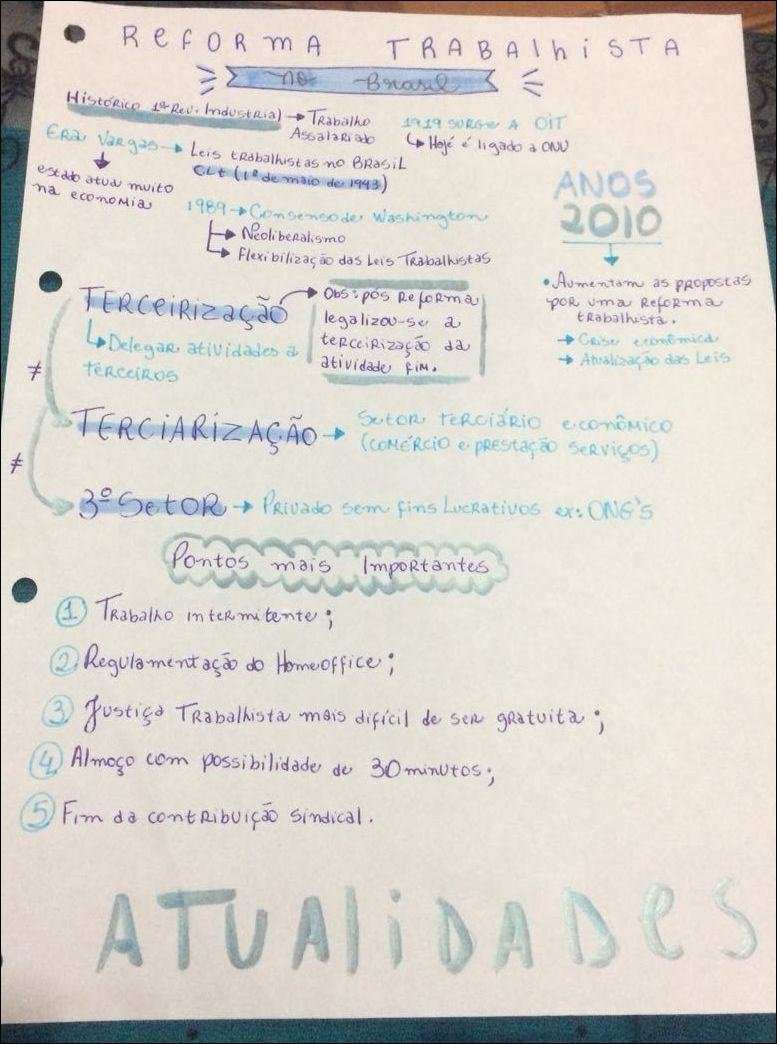 REFORMA TRABALHISTA
no Brasil
Histórico 1ª Rev. Industrial → Trabalho
Assalariado
1919 surge a OIT
↳ Hoje é ligado a ONU
Era Vargas → Leis trabalhistas no Brasil
CLT (1º de maio de 1943)
estado atua muito
na economia
1989 → Consenso de Washington
→ Neoliberalismo
→ Flexibilização das Leis Trabalhistas
ANOS
2010
• Aumentam as propostas
por uma reforma
trabalhista.
→ Crise econômica
→ Atualização das Leis
TERCEIRIZAÇÃO
↳ Delegar atividades a
terceiros
Obs: pós Reforma
legalizou-se a
terceirização da
atividade fim.
≠
TERCIARIZAÇÃO → Setor terciário econômico
(comércio e prestação serviços)
≠
3º Setor → Privado sem fins Lucrativos ex: ONG'S
Pontos mais Importantes
1 Trabalho intermitente;
2 Regulamentação do Homeoffice;
3 Justiça Trabalhista mais difícil de ser gratuita;
4 Almoço com possibilidade de 30 minutos;
5 Fim da contribuição sindical.
ATUALIDADES